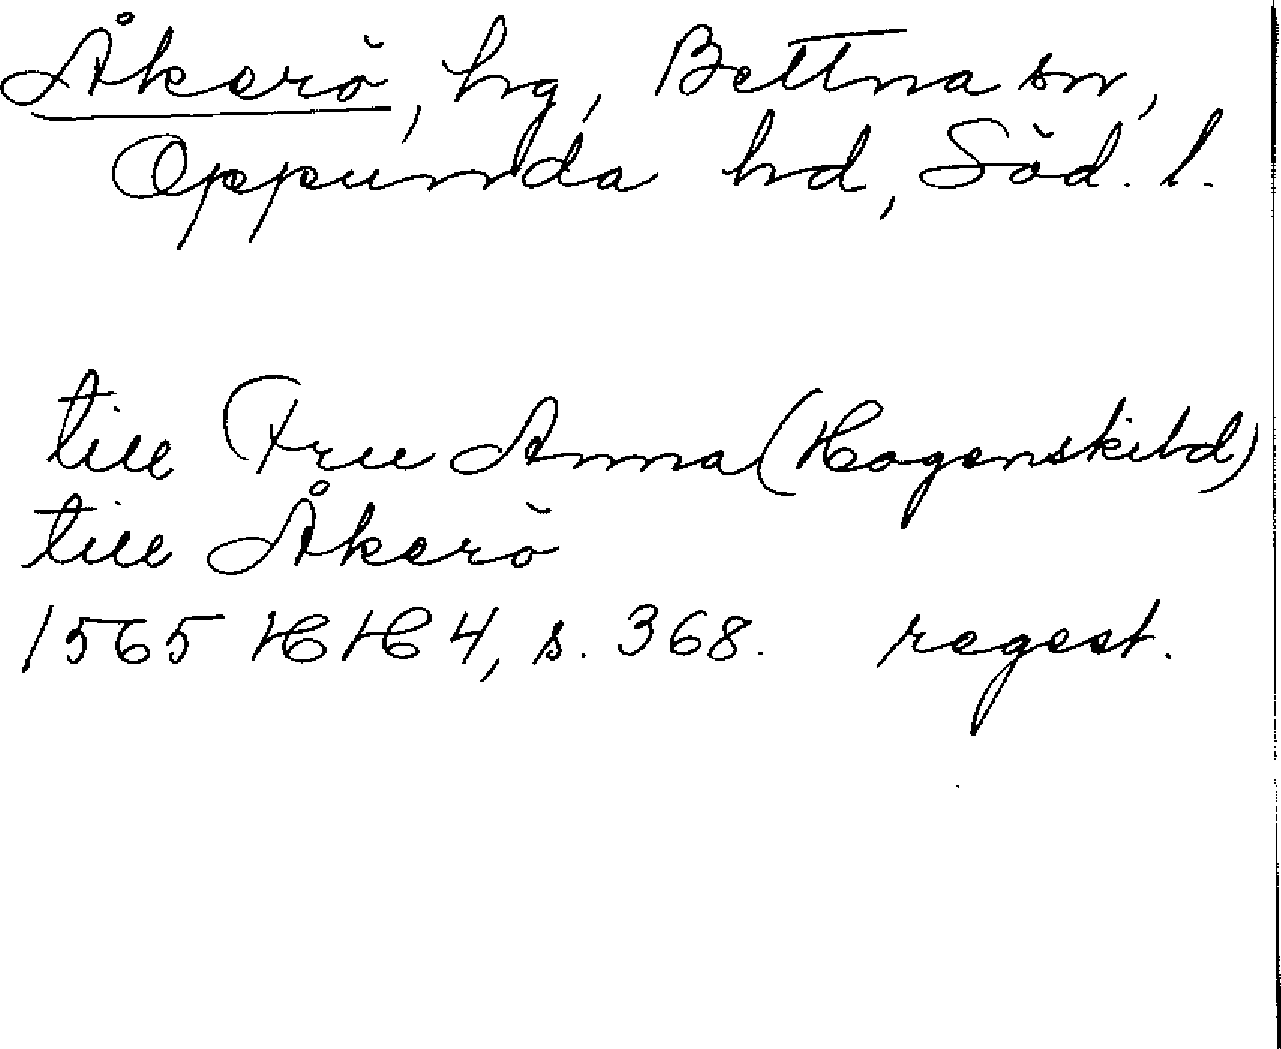 Åkerö, hg, Bettna sn,
Oppunda hd, Söd. l.
till Fru Anna (Hogenskild)
till Åkerö
1565 HH 4, s. 368. regest.